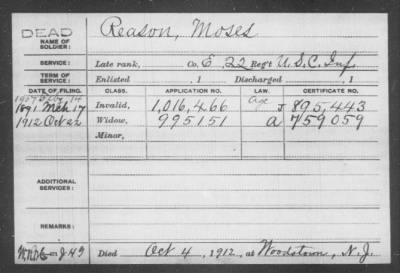 DEAD
NAME OF SOLDIER: Reason, Moses
SERVICE: Late rank, Co. E 22 Reg't U.S.C. Inf.
TERM OF SERVICE: Enlisted , 1 Discharged , 1
DATE OF FILING. CLASS. APPLICATION NO. LAW. CERTIFICATE NO.
1907 14
1891 Mch 17 Invalid, 1,016,466 Age J 895,443
1912 Oct 22 Widow, 995151 a 759059
Minor,
ADDITIONAL SERVICES:
REMARKS:
Died Oct 4, 1912, at Woodstown, N.J.